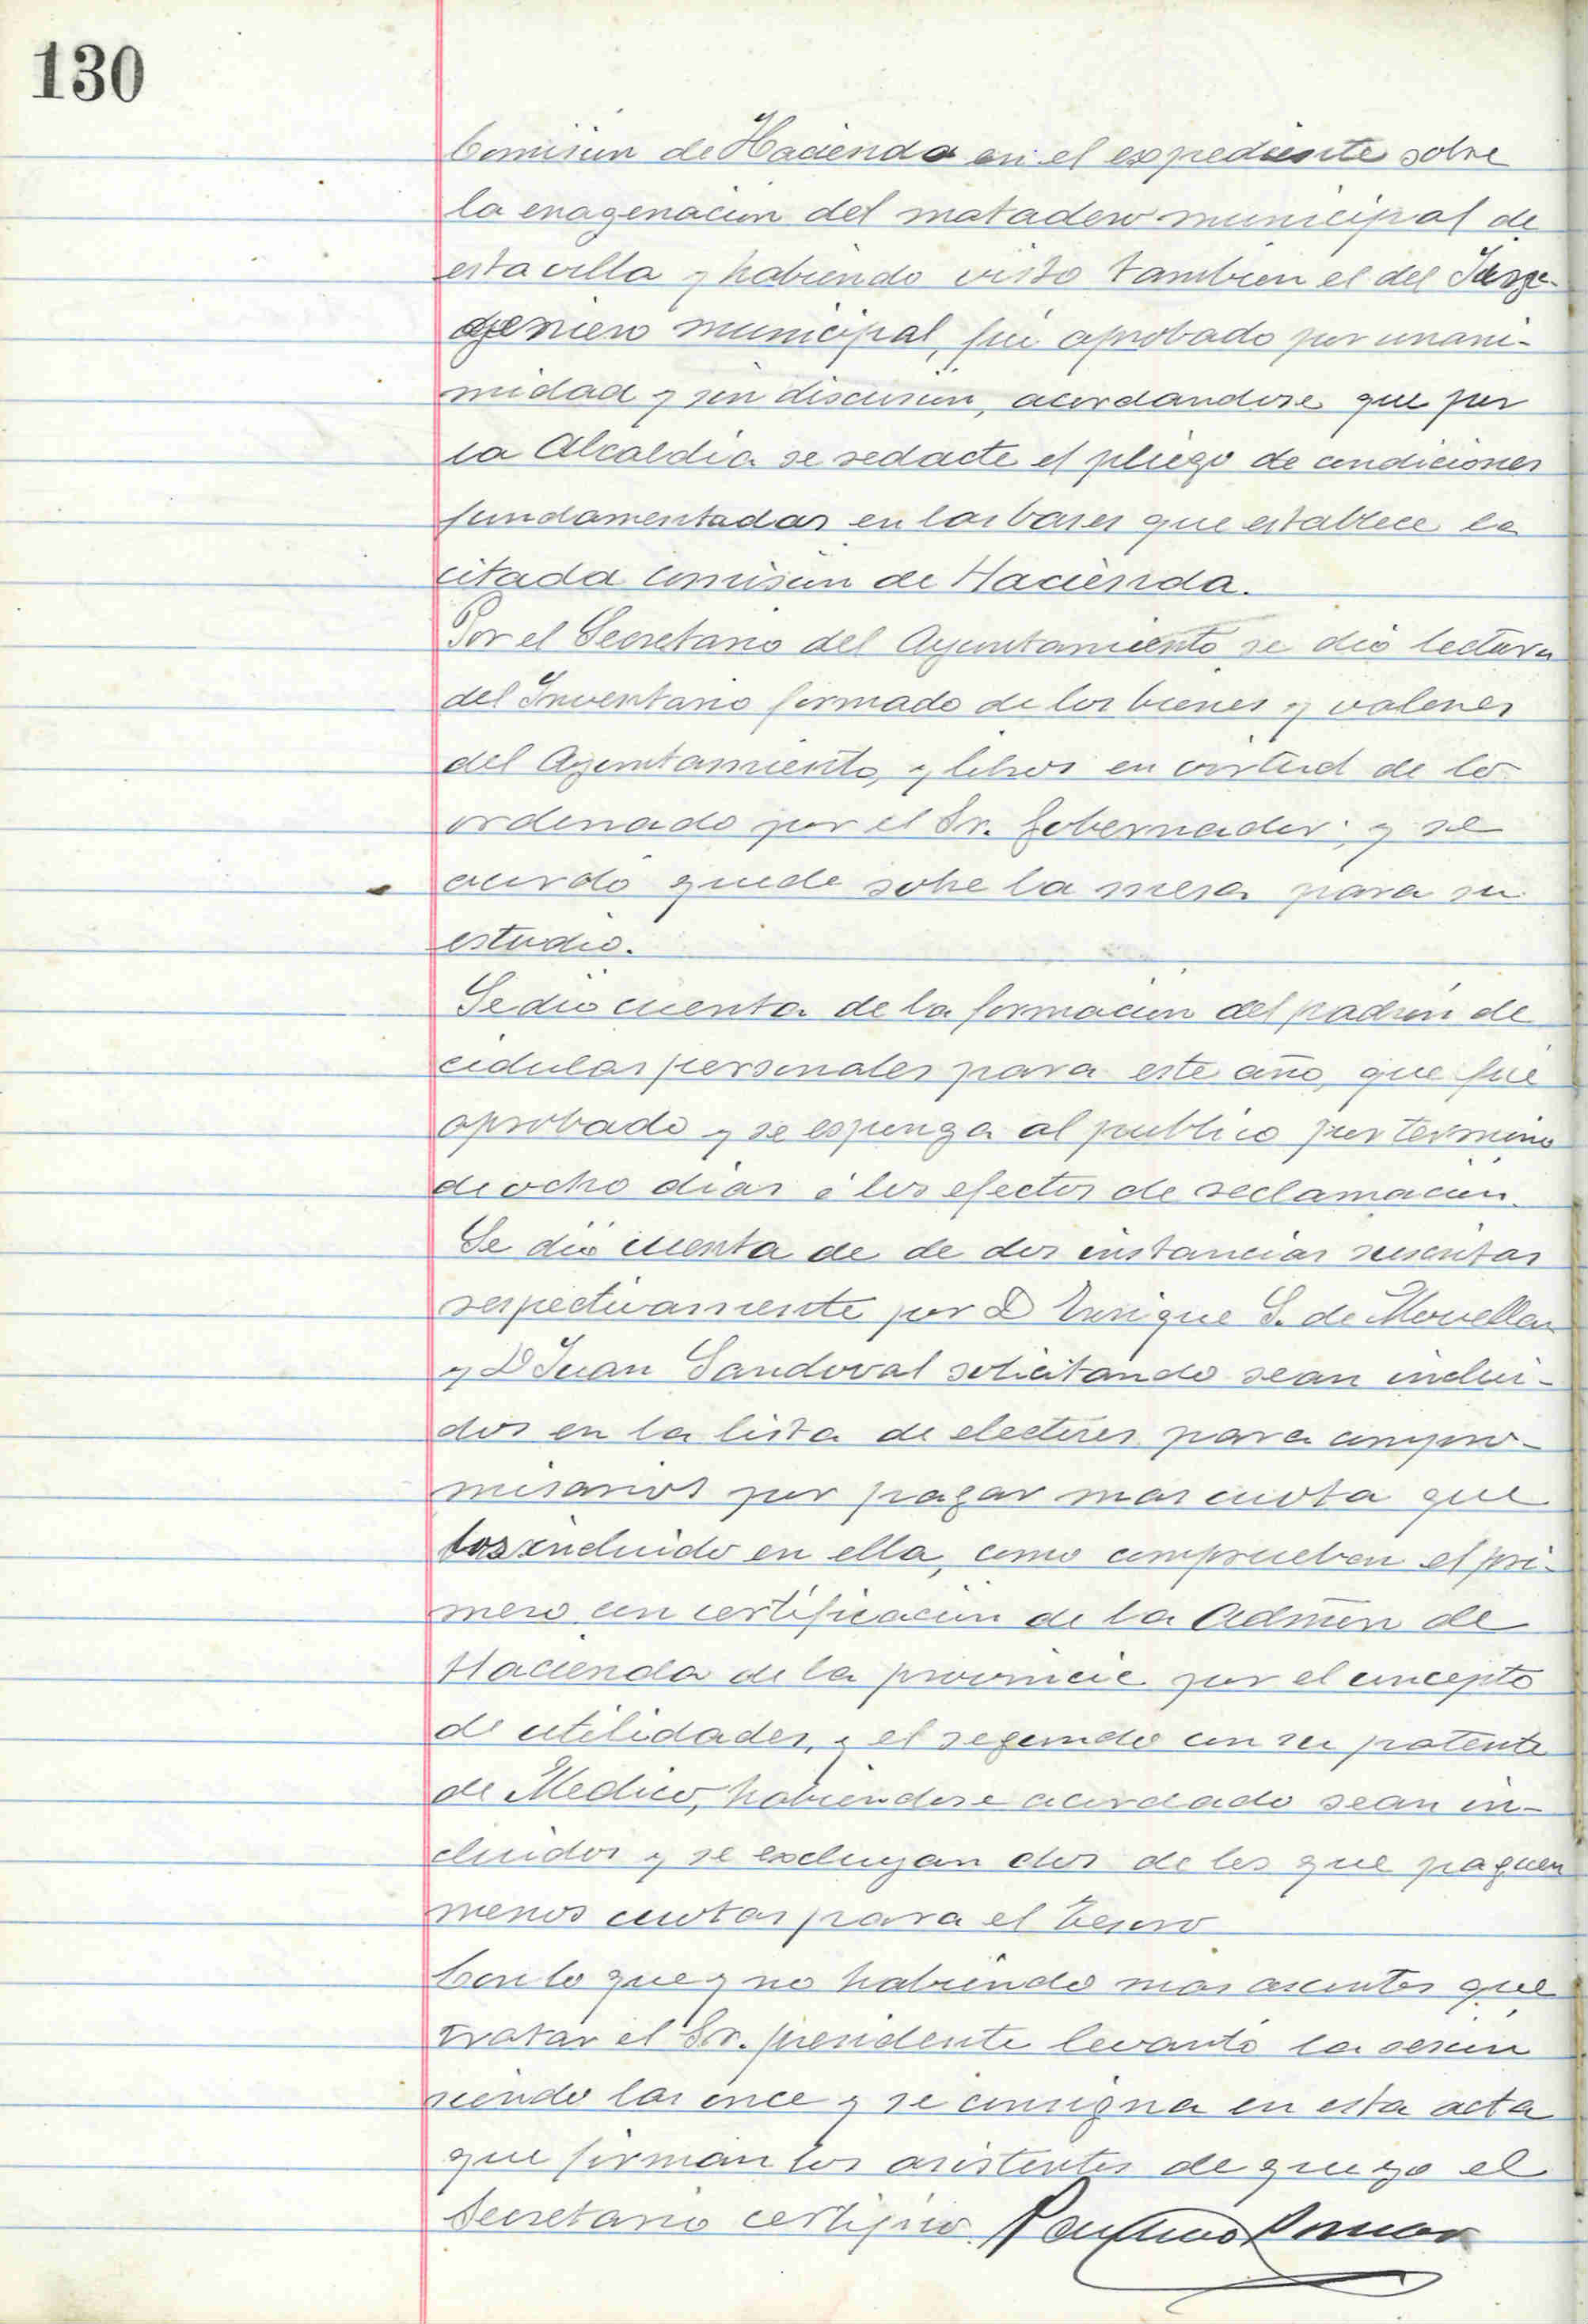 130
Comisión de Hacienda en el expediente sobre
la enagenación del matadero municipal de
esta villa y habiendo visto tambien el del
geniero municipal, fué aprobado por unani-
midad y sin discusión, acordandose que por
la Alcaldia se redacte el pliego de condiciones
fundamentadas en las bases que establece la
citada comisión de Hacienda.
Por el Secretario del Ayuntamiento se dió lectura
del Inventario formado de los bienes y valores
del Ayuntamiento, y libros en virtud de lo
ordenado por el Sr. Gobernador; y se
acordó quede sobre la mesa para su
estudio.
Se dió cuenta de la formación del padrón de
cédulas personales para este año, que fué
aprobado y se esponga al publico por termino
de ocho dias á los efectos de reclamación.
Se dió cuenta de de dos instancias suscritas
respectivamente por D Enrique S. de Movellan
y D Juan Sandoval solicitando sean inclui-
dos en la lista de electores para compro-
misarios por pagar mas cuota que
los incluido en ella, como comprueban el pri-
mero con certificación de la Admón de
Hacienda de la provincia por el concepto
de utilidades, y el segundo con su patente
de Medico, habiendose acordado sean in-
cluidos y se excluyan dos de los que paguen
menos cuotas para el Tesoro
Con lo que y no habiendo mas asuntos que
tratar el Sr. presidente levantó la sesión
siendo las once y se consigna en esta acta
que firman los asistentes de que yo el
Secretario certifico.